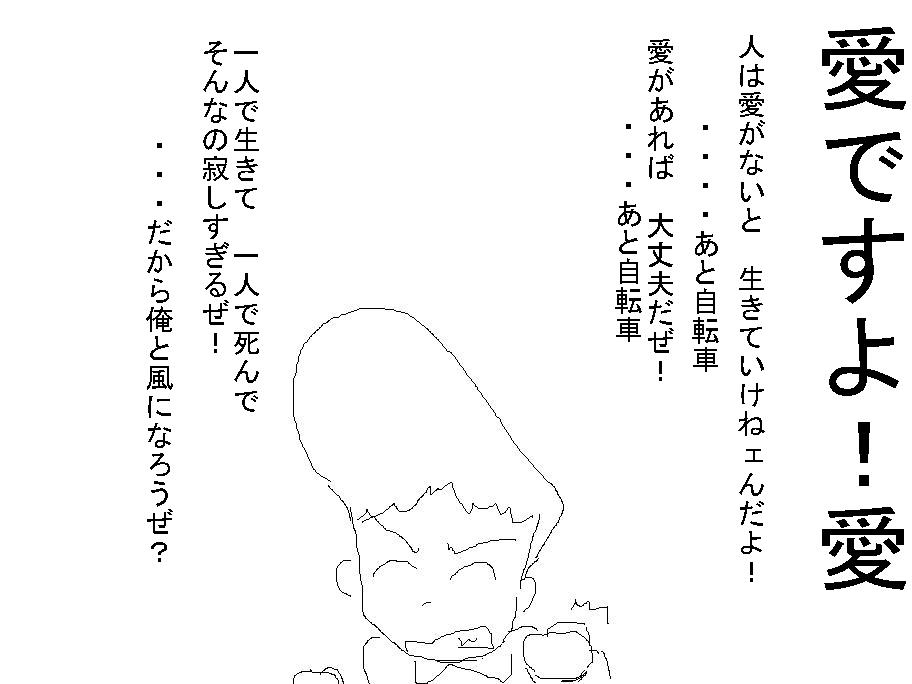 愛ですよ！愛
人は愛がないと　生きていけねェんだよ！
・・・・あと自転車
愛があれば　大丈夫だぜ！
・・・あと自転車
一人で生きて　一人で死んで
そんなの寂しすぎるぜ！
・・・だから俺と風になろうぜ？